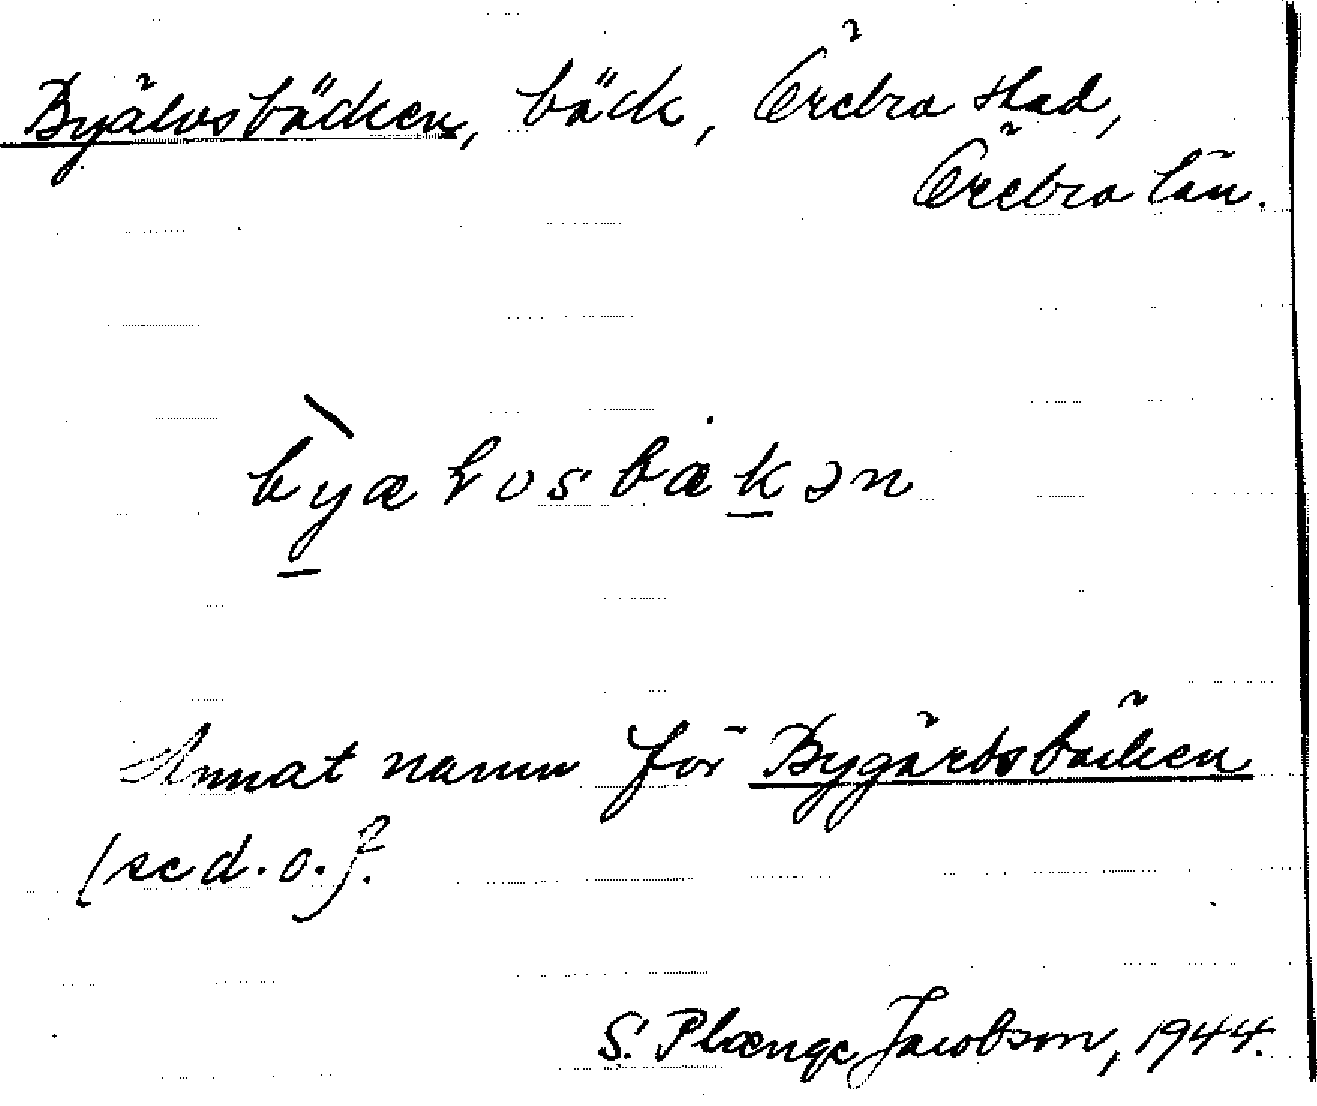 Byälvsbäcken, bäck, Örebro stad,
Örebro län.
byælvsbækən
Annat namn för Bygärdsbäcken
(se d. o.).
S. Plænge Jacobson, 1944.